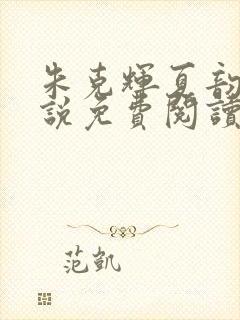 朱克輝夏韵
說免費閱讀
范凱